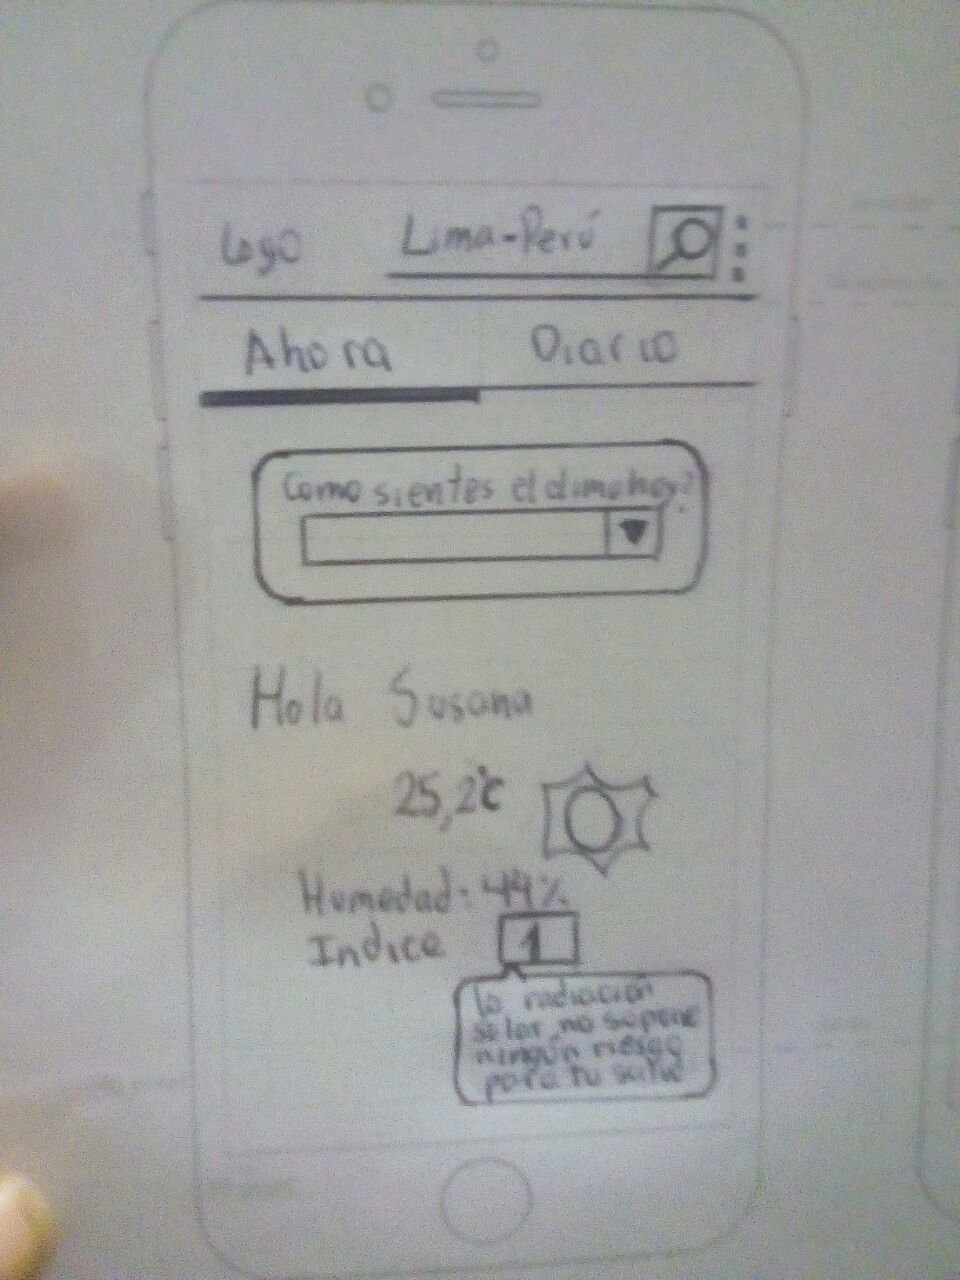 Logo
Lima-Perú
Ahora
Diario
Como sientes el clima hoy?
Hola Susana
25,2°C
Humedad: 44%
Indice 1
la radiación
solar no supone
ningún riesgo
para tu salud